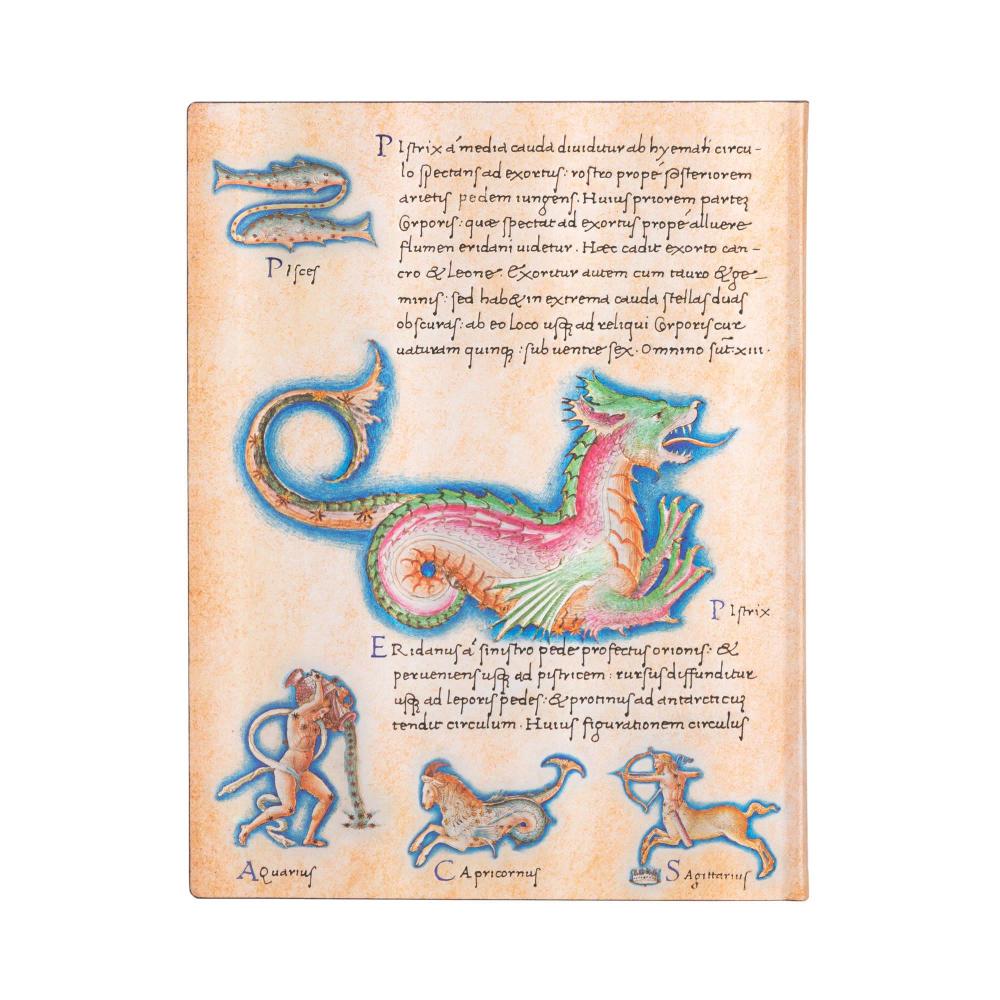 PIstrix a' media cauda diuiditur ab hyemali circu-
lo spectans ad exortus: rostro prope posteriorem
arietis pedem iungens. Huius priorem partem
Corporis: quæ spectat ad exortus prope alluere
flumen eridani uidetur. Hæc cadit exorto can-
cro & Leone. Exoritur autem cum tauro & ge-
minis: sed hab& in extrema cauda stellas duas
obscuras: ab eo loco usq; ad reliqui Corporis cur
uaturam quinq; : sub uentre sex. Omnino sūt. xiii.
PIsces
PIstrix
ERidanus a' sinistro pede profectus orionis: &
perueniens usq; ad pistricem: rursus diffunditur
usq; ad leporis pedes: & protinus ad antarcticuʒ
tendit circulum. Huius figurationem circulus
AQuarius
CApricornus
SAgittarius